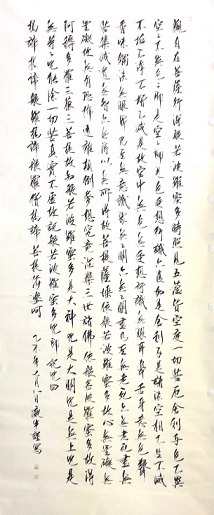 觀自在菩薩行深般若波羅蜜多時照見五蘊皆空度一切苦厄舍利子色不異
空空不異色色即是空空即是色受想行識亦復如是舍利子是諸法空相不生不滅
不垢不淨不增不減是故空中無色無受想行識無眼耳鼻舌身意無色聲
香味觸法無眼界乃至無意識界無無明亦無無明盡乃至無老死亦無老死盡無
苦集滅道無智亦無得以無所得故菩提薩埵依般若波羅蜜多故心無罣礙無
罣礙故無有恐怖遠離顛倒夢想究竟涅槃三世諸佛依般若波羅蜜多故得
阿耨多羅三藐三菩提故知般若波羅蜜多是大神咒是大明咒是無上咒是
無等等咒能除一切苦真實不虛故說般若波羅蜜多咒即說咒曰
揭諦揭諦般羅揭諦般羅僧揭諦菩提薩婆訶